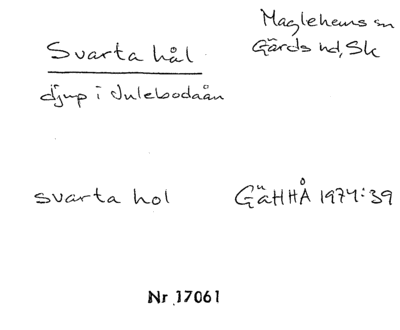 Maglehems sn
Svarta hål
Gärds hd, Sk
djup i Julebodaån
svarta hol GäHHÅ 1974:39
Nr 17061